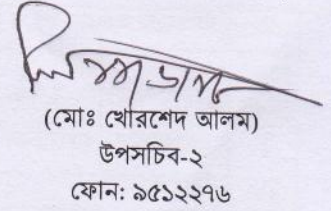 (মোঃ খোরশেদ আলম)
উপসচিব-২
ফোন: ৯৫১২২৭৬